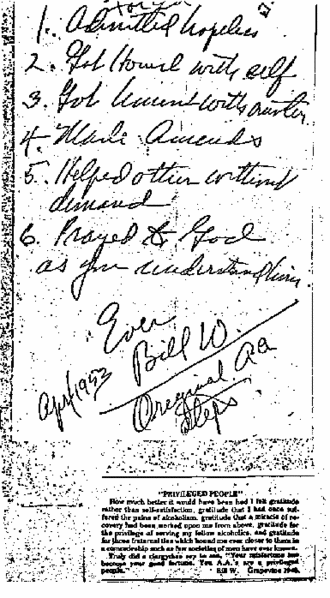 For Ed
1. Admitted hopeless
2. Got honest with self
3. Got honest with another
4. Made Amends
5. Helped others without
demand
6. Prayed to God
as you understand him
Ever
Bill W.
Apr/1953
Original AA
Steps
"PRIVILEGED PEOPLE"
How much better it would have been had I felt gratitude
rather than self-satisfaction, gratitude that I had once suf-
fered the pains of alcoholism, gratitude that a miracle of re-
covery had been worked upon me from above, gratitude for
the privilege of serving my fellow alcoholics, and gratitude
for those fraternal ties which bound me ever closer to them in
a comradeship such as few societies of men have ever known.
Truly did a clergyman say to me, "Your misfortune has
become your good fortune. You A.A.'s are a privileged
people."     Bill W.     Grapevine 1946.